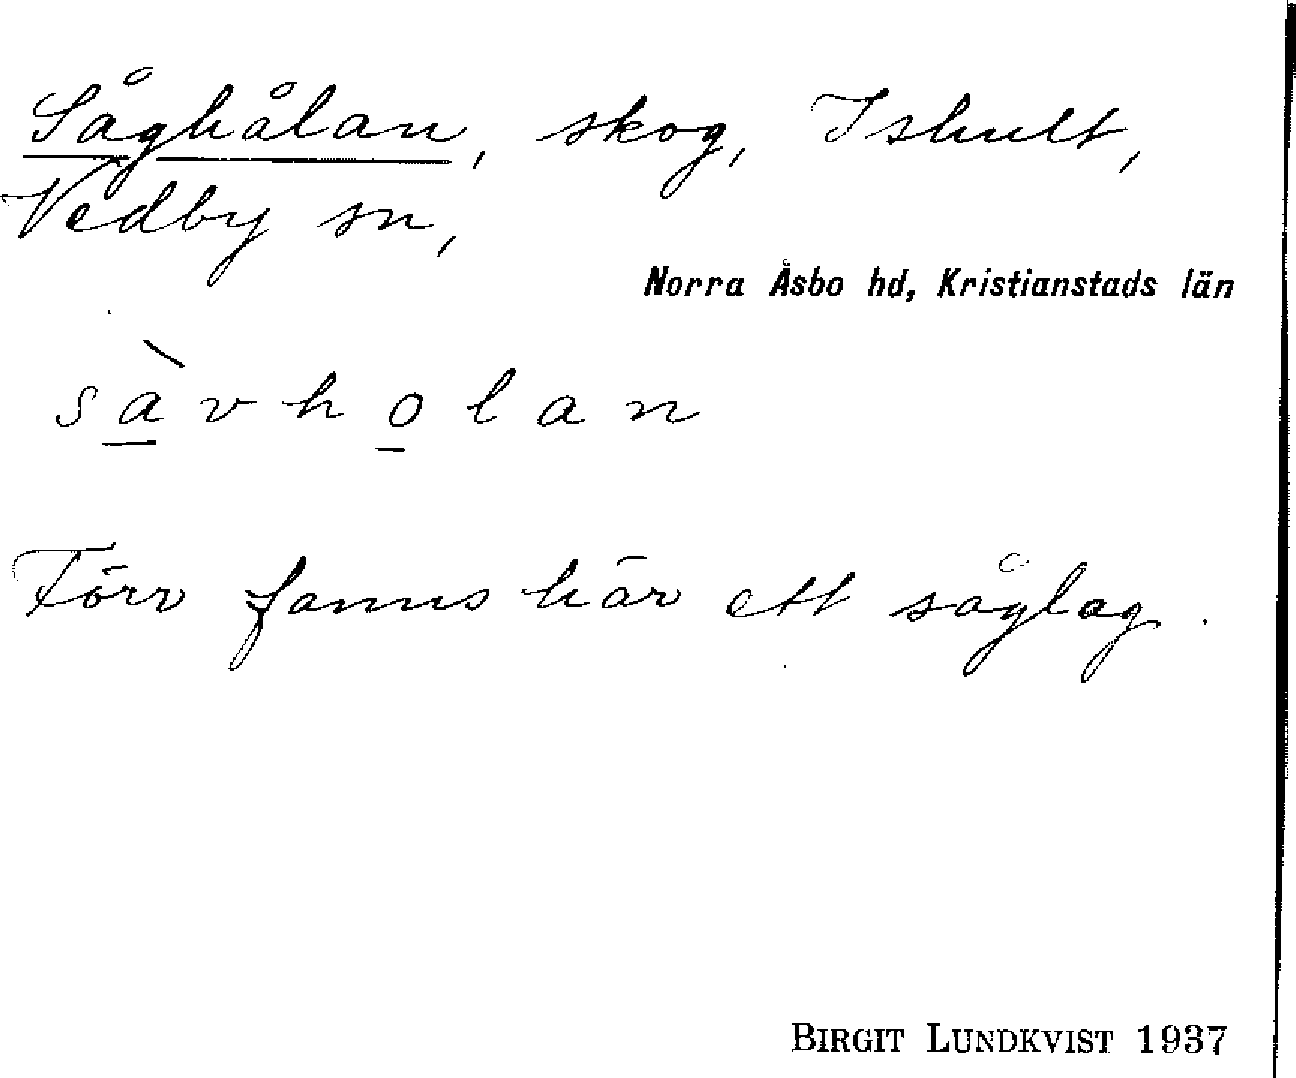 Såghålan, skog, Ishult,
Vedby sn,
Norra Åsbo hd, Kristianstads län
sàvholan
Förr fanns här ett såglag.
BIRGIT LUNDKVIST 1937